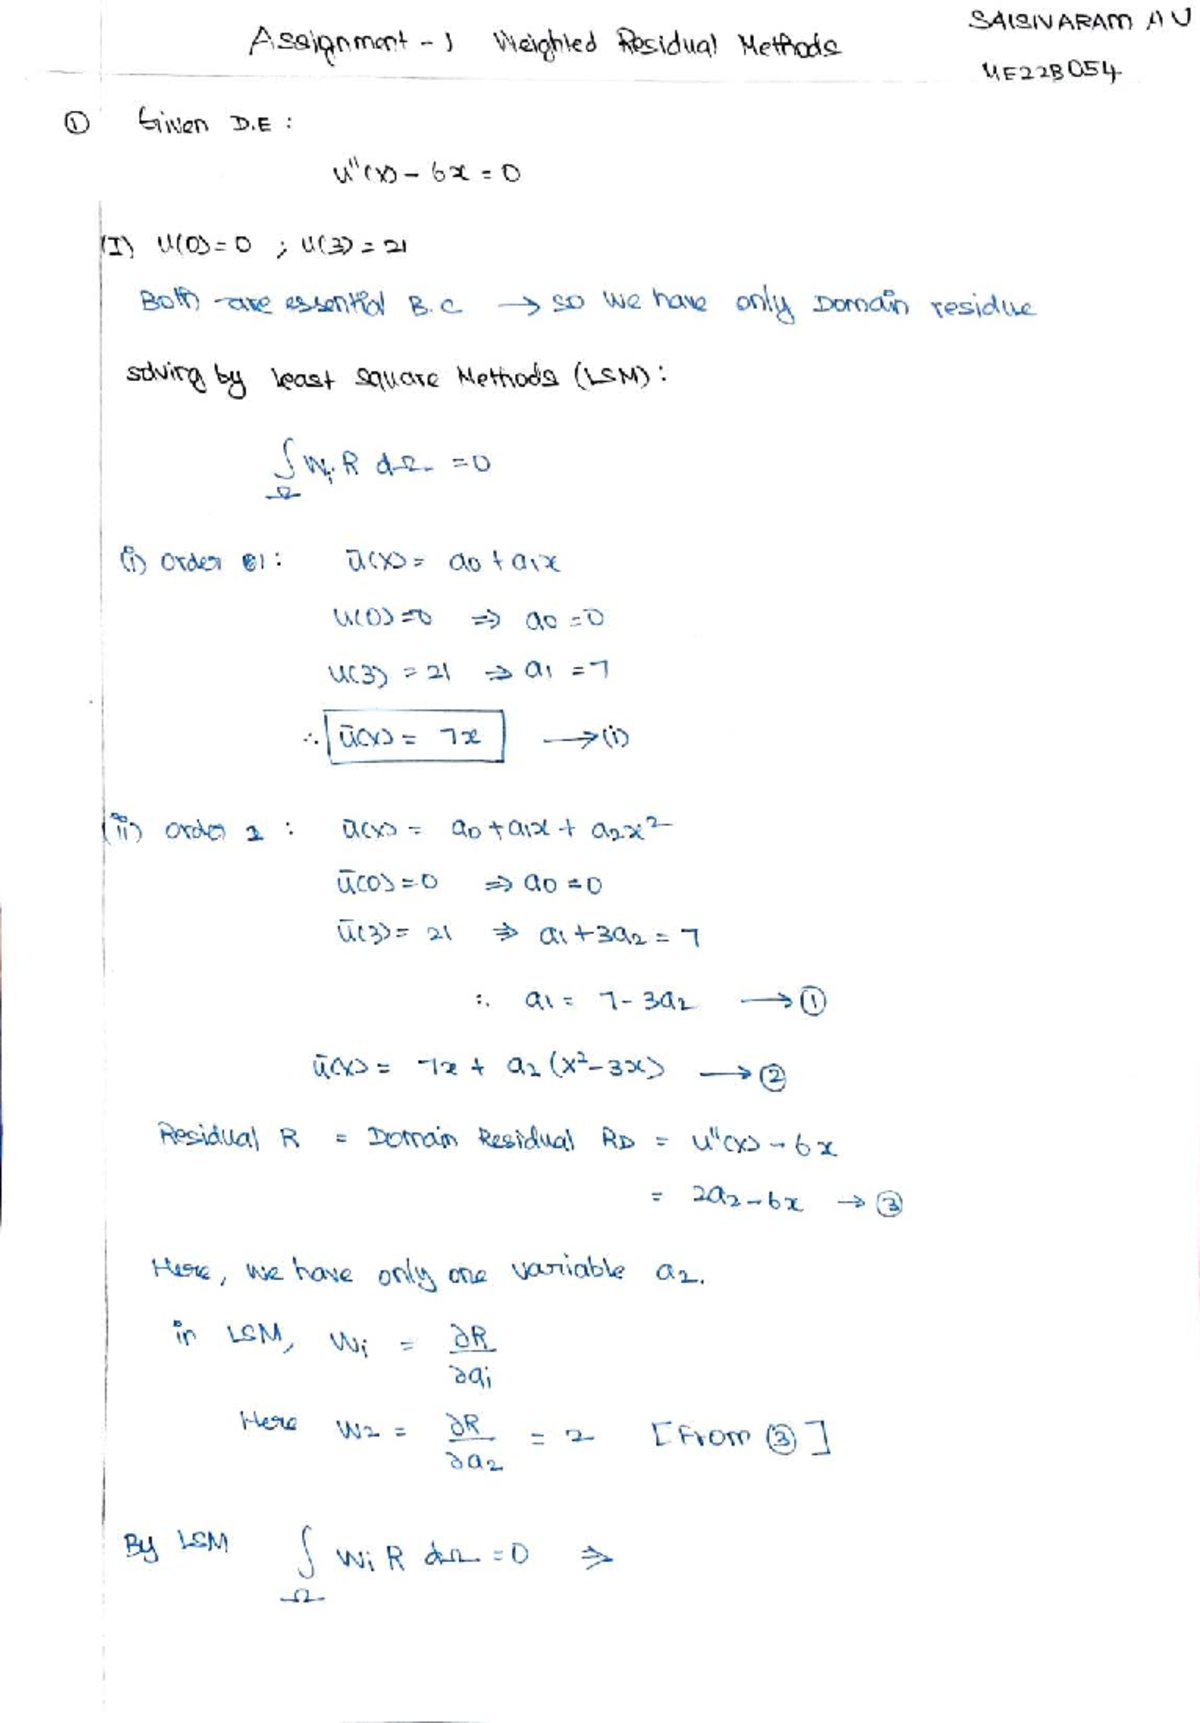 Assignment - 1 Weighted Residual Methods
SAISIVARAM A U
ME22B054
① Given D.E :
u''(x) - 6x = 0
(I) u(0) = 0 ; u(3) = 21
Both are essential B.C → so we have only Domain residue
solving by least square Methods (LSM) :
∫_Ω Wi R dΩ = 0
(i) order 1 : ū(x) = a0 + a1x
u(0) = 0 ⇒ a0 = 0
u(3) = 21 ⇒ a1 = 7
∴ ū(x) = 7x → (i)
(ii) order 2 : ū(x) = a0 + a1x + a2x²
ū(0) = 0 ⇒ a0 = 0
ū(3) = 21 ⇒ a1 + 3a2 = 7
∴ a1 = 7 - 3a2 → ①
ū(x) = 7x + a2 (x² - 3x) → ②
Residual R = Domain Residual RD = u''(x) - 6x
= 2a2 - 6x → ③
Here, we have only one variable a2.
in LSM, Wi = ∂R/∂ai
Here W2 = ∂R/∂a2 = 2 [From ③]
By LSM ∫_Ω Wi R dΩ = 0 ⇒